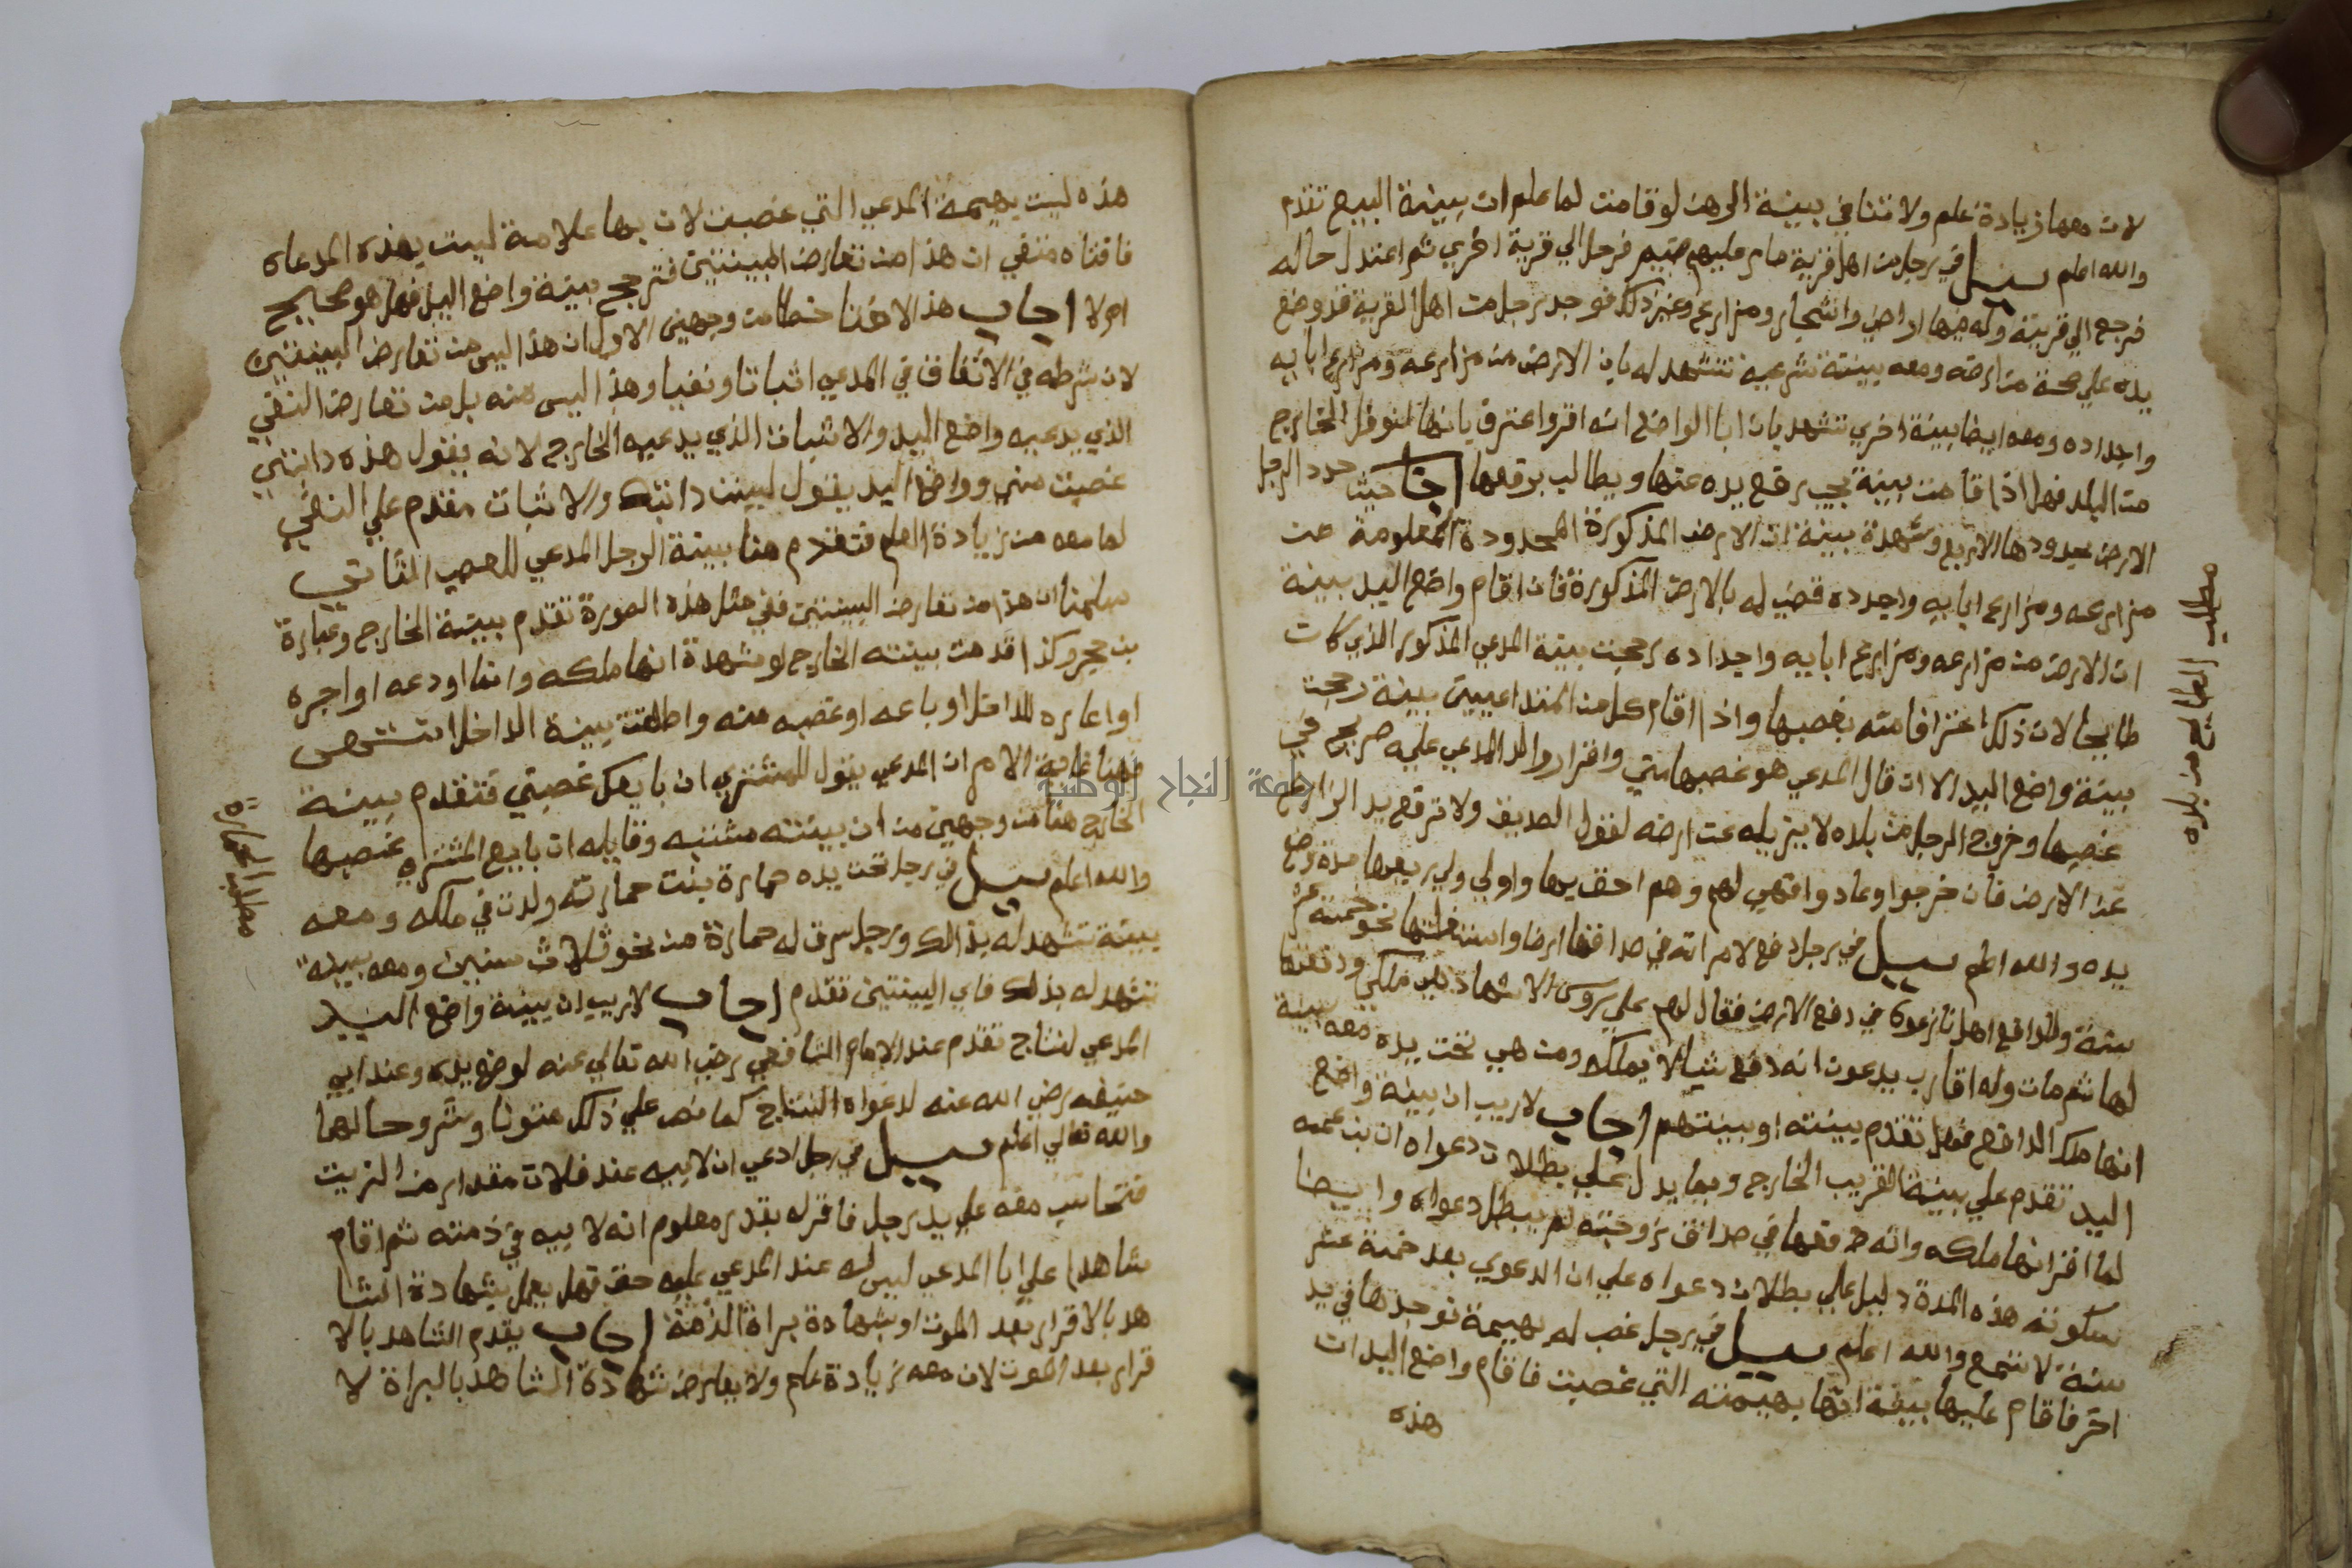 لان معها زيادة علم ولا تنافي بينة الرهن لو قامت لما علم ان بينة البيع تقدم
والله اعلم سيل في رجل من اهل قرية صار عليهم ضيم فرحل الي قرية اخري ثم اعتدل حاله
فرجع الي قريته وله فيها اراضي واشجار ومزارع وغير ذلك فوجد رجل من اهل القرية قد وضع
يده علي حصة من ارضه ومعه بينة شرعية تشهد له بان الارض من مزارعه ومزارع ابايه
واجداده ومعه ايضا بينة اخري تشهد بان ابا الواضع انه اقر واعترف بانها لفلان الخارج
من البلد فهل اذا قامت بينة يجب رفع يده عنها ويطالب برفعها اجاب حيث حدد الرجل
الارض بحدودها الاربع وشهدة بينة ان الارض المذكورة المحدودة المعلومة من
مزارعه ومزارع ابايه واجداده قضي له بالارض المذكورة فان اقام واضع اليد بينة
ان الارض من مزارعه ومزارع ابايه واجداده رجحت بينة المدعي المذكور الذي كان
طايحا لان ذلك اعترافا منه بغصبها واذا اقام كل من المتداعيين بينة رجحت
بينة واضع اليد الا ان قال المدعي هو غصبها مني واقرار والد المدعي عليه صريح في
غصبها وخروج الرجل من بلده لا يزيله عن ارضه لقول الصديق ولا ترفع يد الزارع
عن الارض فان خرجوا وعادوا فهي لهم وهم احق بها واولي ولي ريعها مدة وضع
يده والله اعلم سيل في رجل دفع لامراته في صداقها ارضا واستغلتها نحو خمسة عشر
سنة والدافع اهل نازعوه في دفع الارض فقال لهم علي روس الاشهاد هي ملكي ودفعتها
لها ثم مات وله اقارب يدعون انه دفع شيا لا يملكه ومن هي تحت يده معه بينة
انها ملك الدافع فهل تقدم بينته او بينتهم اجاب لا ريب ان بينة واضع
اليد تقدم علي بينة القريب الخارج ومما يدل علي بطلان دعواه ان بن عمه
لما اقر انها ملكه وانه دفعها في صداق زوجته لم يبطل دعواه وايضا
سكوته هذه المدة دليل علي بطلان دعواه علي ان الدعوي بعد خمسة عشر
سنة لا تسمع والله اعلم سيل في رجل غصب له بهيمة فوجدها في يد
اخر فاقام عليها بينة انها بهيمته التي غصبت فاقام واضع اليد ان
هذه
مطلب الطايح من بلده
هذه ليست بهيمة المدعي التي غصبت لان بها علامة ليست بهذه المدعاه
فافتاه مفتي ان هذا من تعارض البينتين فترجح بينة واضع اليد فهل هو صحيح
ام لا اجاب هذا الافتا خطا من وجهين الاول ان هذا ليس من تعارض البينتين
لان شرطه في الاتفاق في المدعي اثباتا ونفيا وهذا ليس منه بل من تعارض النفي
الذي يدعيه واضع اليد والاثبات الذي يدعيه الخارج لانه يقول هذه دابتي
غصبت مني وواضع اليد يقول ليست دابته والاثبات مقدم علي النفي
لما معه من زيادة العلم فتقدم هنا بينة الرجل المدعي للغصب الثاني
سلمنا ان هذا من تعارض البينتين ففي مثل هذه الصورة تقدم بينة الخارج وعبارة
بن حجر وكذا قدمت بينته الخارج لو شهدة انها ملكه وانما اودعه او اجره
او اعاره للداخل او باعه او غصبه منه واطلقت بينة الداخل انتهي
فهنا غاية الامر ان المدعي يقول للمشتري ان بايعك غصبني فتقدم بينة
الخارج هنا من وجهين من ان بينته مثبتة وقايله ان بايع المشتري غصبها
والله اعلم سيل في رجل تحت يده حمارة بنت حمارته ولدت في ملكه ومعه
بينة تشهد له بذالك ورجل سرق له حمارة من نحو ثلاث سنين ومعه بينه
تشهد له بذلك فاي البينتين تقدم اجاب لا ريب ان بينة واضع اليد
المدعي لنتاج تقدم عند الامام الشافعي رضي الله تعالي عنه لوضع يده وعند ابي
حنيفه رضي الله عنه لدعواه النتاج كما نص علي ذلك متونا وشروحا لهما
والله تعالي اعلم سيل في رجل ادعي ان لابيه عند فلان مقدار من الزيت
فتحاسب معه علي يد رجل فاقر له بقدر معلوم انه لابيه في ذمته ثم اقام
شاهدا علي ابا المدعي ليس له عند المدعي عليه حق فهل يعمل بشهادة الشا
هد بالاقرار بعد الموت او بشهادة براة الذمة اجاب يقدم الشاهد بالا
قرار بعد الموت لان معه زيادة علم ولا يعارض شهادة الشاهد بالبراة لا
مطلب الحمارة
جامعة النجاح الوطنية